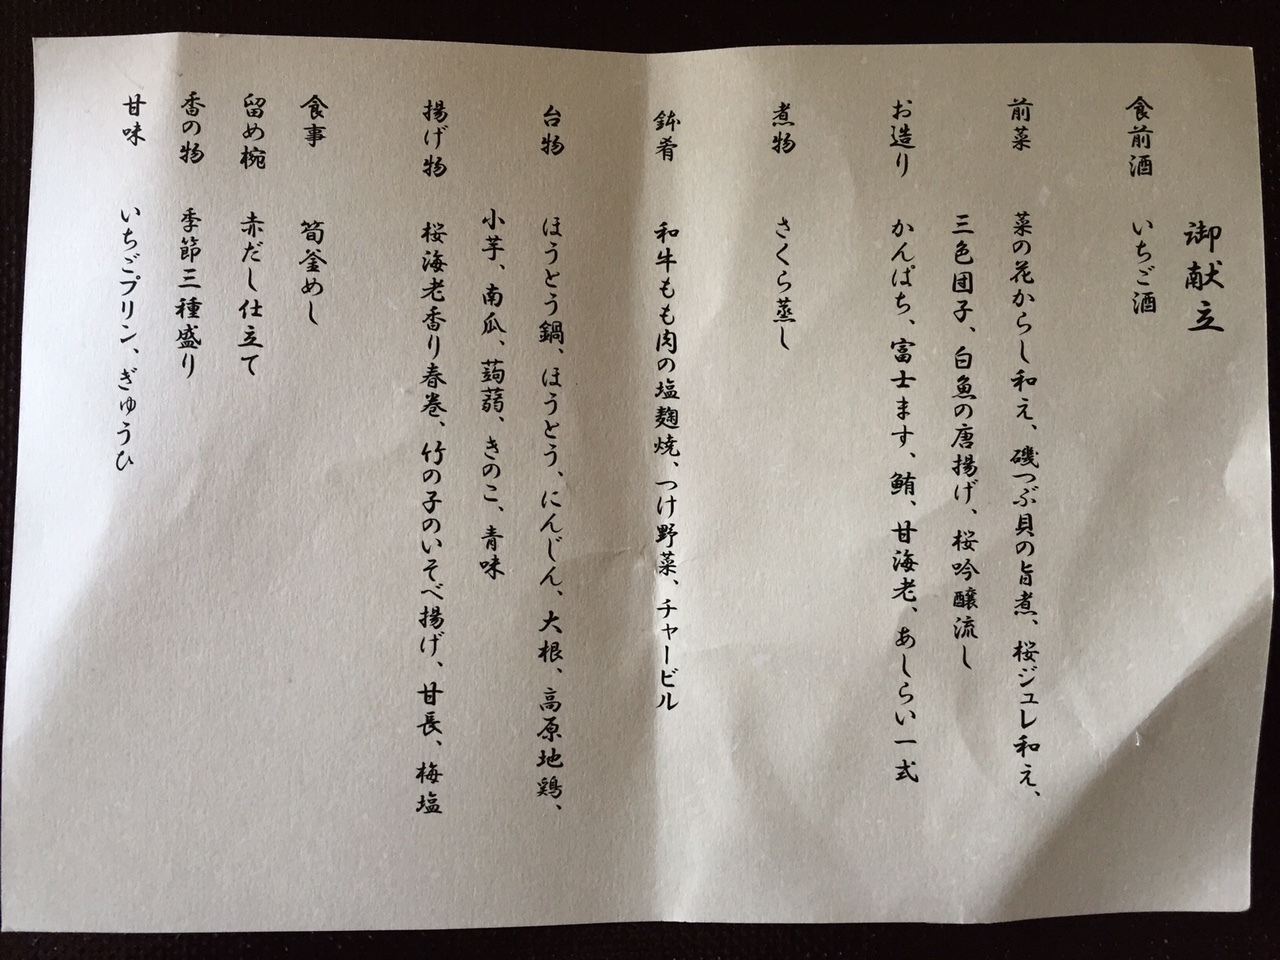 御献立
食前酒 いちご酒
前菜 菜の花からし和え、磯つぶ貝の旨煮、桜ジュレ和え、
三色団子、白魚の唐揚げ、桜吟醸流し
お造り かんぱち、富士ます、鮪、甘海老、あしらい一式
煮物 さくら蒸し
鉢肴 和牛もも肉の塩麹焼、つけ野菜、チャービル
台物 ほうとう鍋、ほうとう、にんじん、大根、高原地鶏、
小芋、南瓜、蒟蒻、きのこ、青味
揚げ物 桜海老香り春巻、竹の子のいそべ揚げ、甘長、梅塩
食事 筍釜めし
留め椀 赤だし仕立て
香の物 季節三種盛り
甘味 いちごプリン、ぎゅうひ